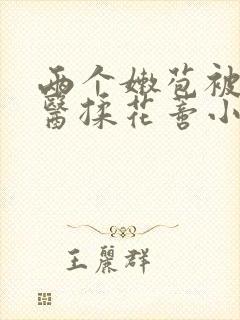 两个嫩苞被
醫揉花蕾小
王麗群